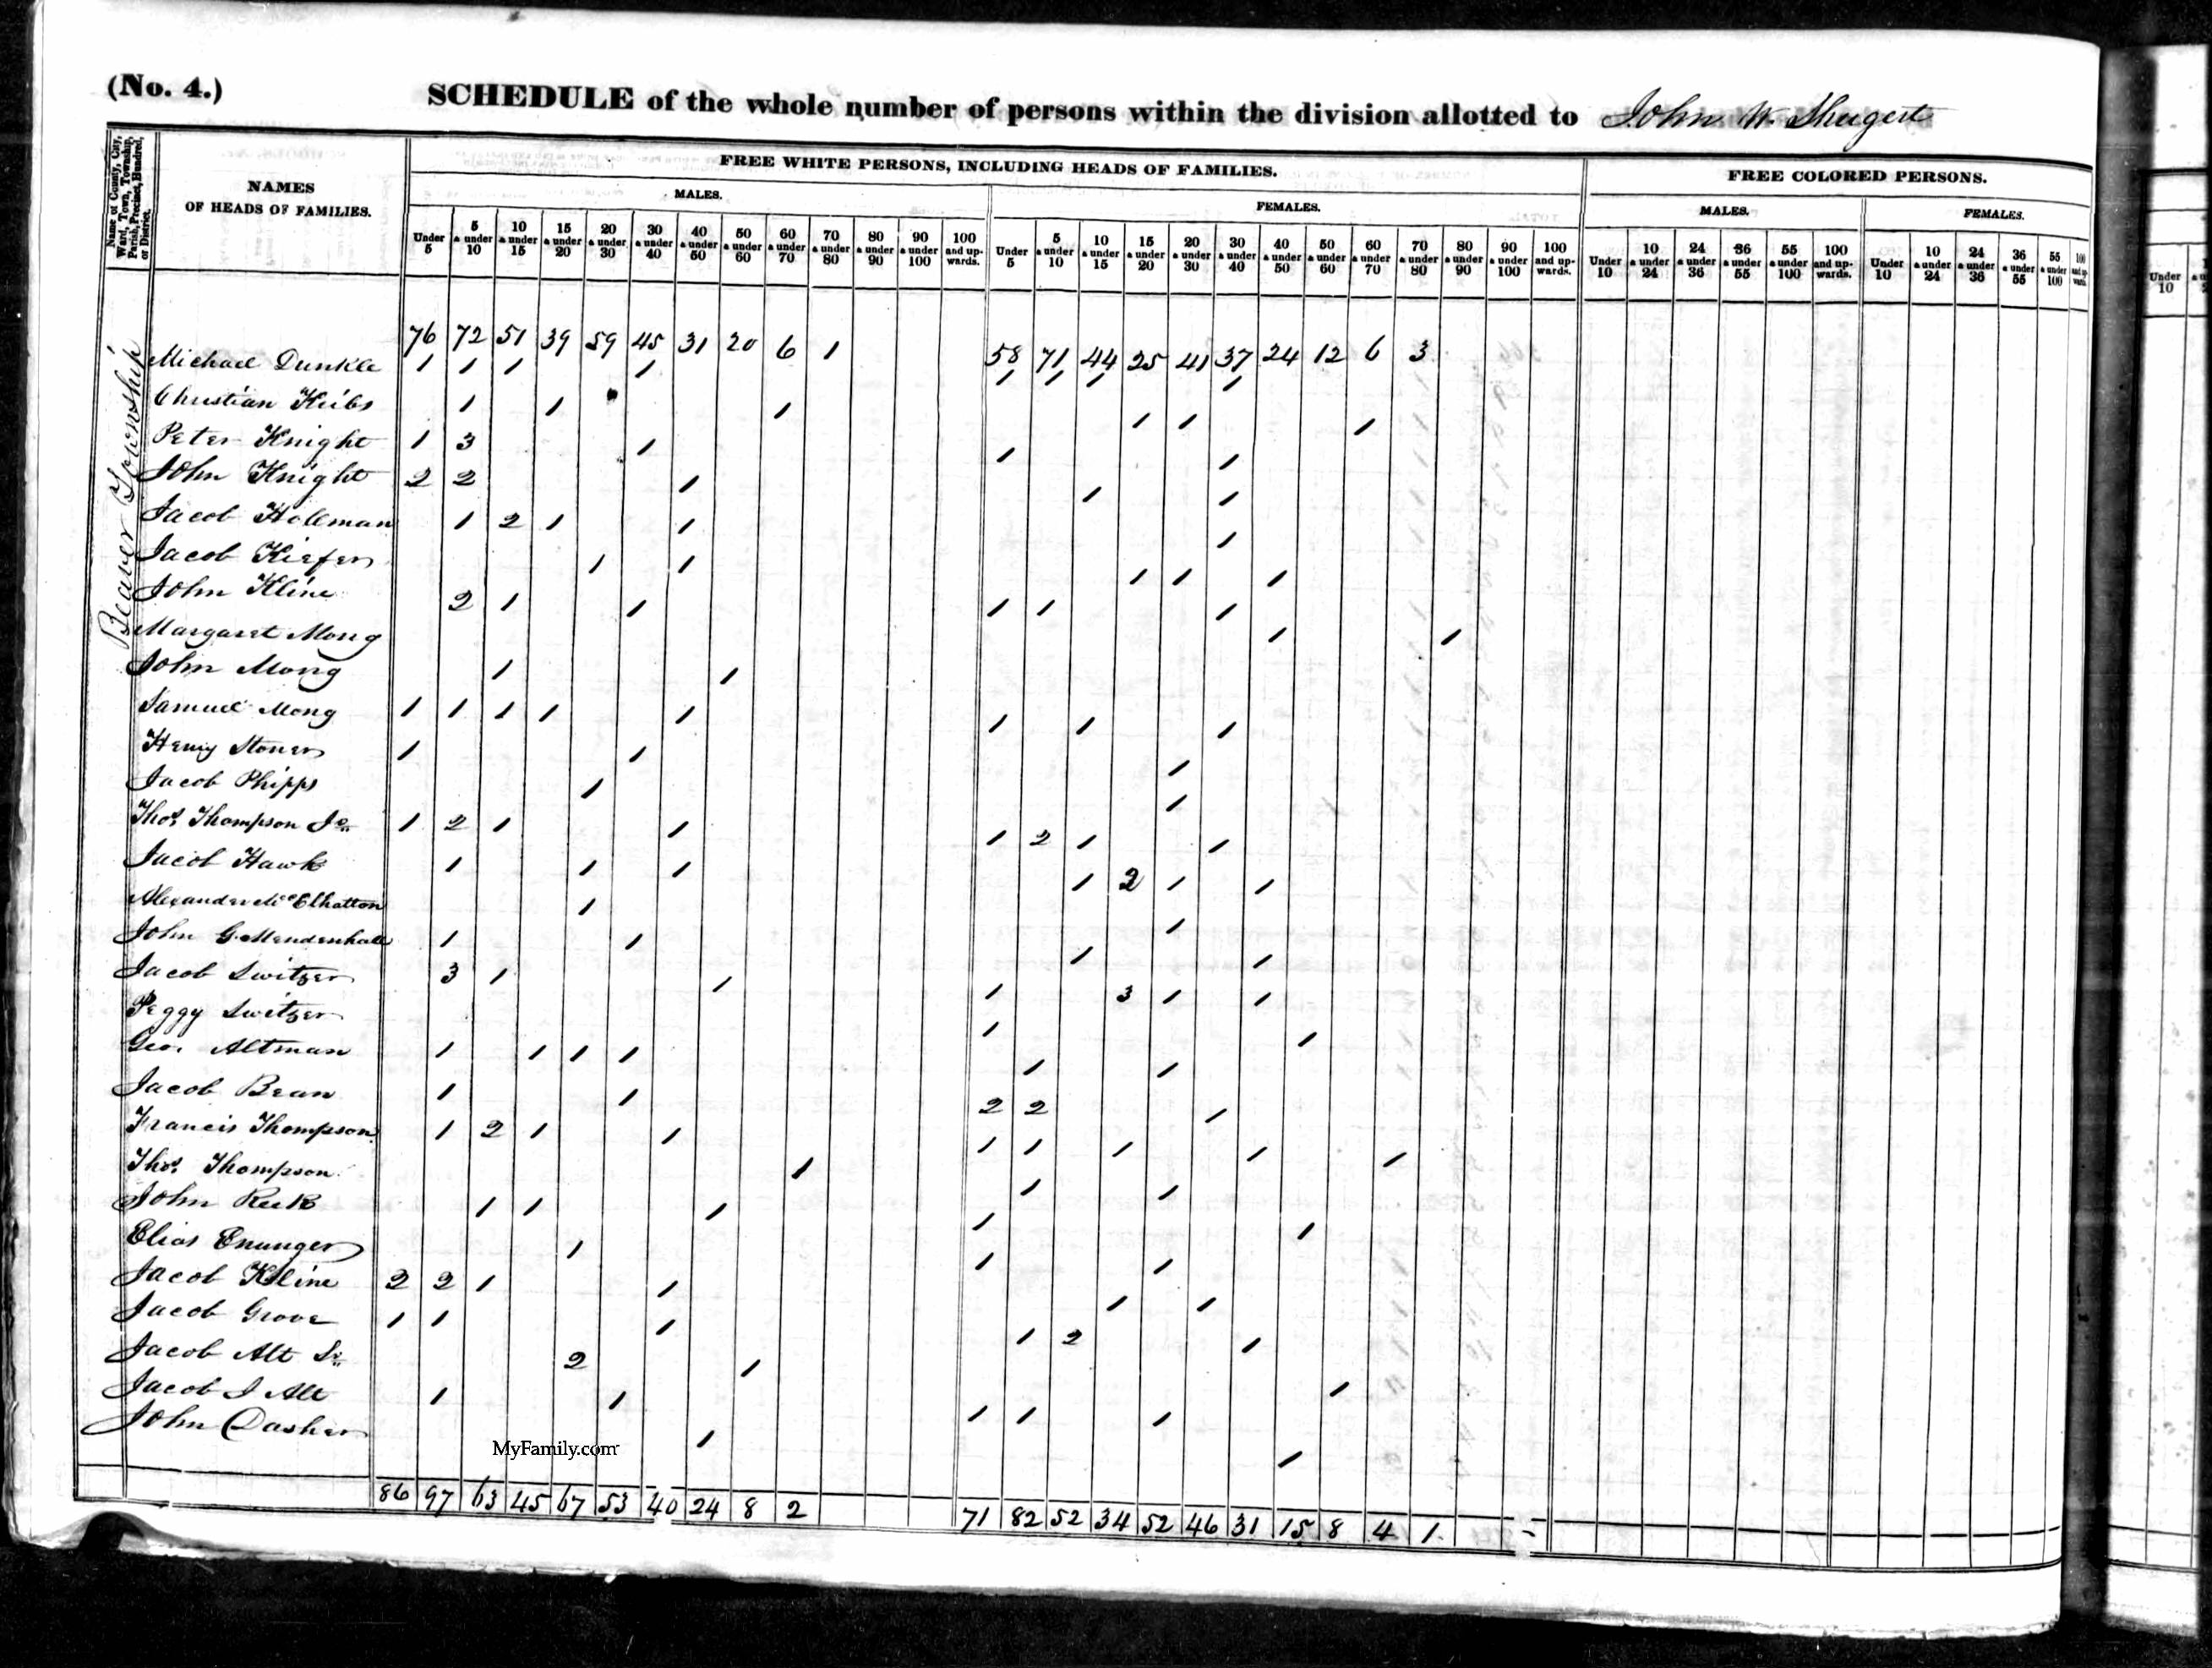 (No. 4.)
SCHEDULE of the whole number of persons within the division allotted to John W. Shugert
Name of County, City, Ward, Town, Township, Parish, Precinct, Hundred, or District.
NAMES OF HEADS OF FAMILIES.
FREE WHITE PERSONS, INCLUDING HEADS OF FAMILIES.
FREE COLORED PERSONS.
MALES.
FEMALES.
MALES.
FEMALES.
Under 5 | 5 & under 10 | 10 & under 15 | 15 & under 20 | 20 & under 30 | 30 & under 40 | 40 & under 50 | 50 & under 60 | 60 & under 70 | 70 & under 80 | 80 & under 90 | 90 & under 100 | 100 and upwards. | Under 5 | 5 & under 10 | 10 & under 15 | 15 & under 20 | 20 & under 30 | 30 & under 40 | 40 & under 50 | 50 & under 60 | 60 & under 70 | 70 & under 80 | 80 & under 90 | 90 & under 100 | 100 and upwards. | Under 10 | 10 & under 24 | 24 & under 36 | 36 & under 55 | 55 & under 100 | 100 and upwards. | Under 10 | 10 & under 24 | 24 & under 36 | 36 & under 55 | 55 & under 100 | 100 and upwards.
Under 10
Beaver Township
76 72 51 39 59 45 31 20 6 1 58 71 44 25 41 37 24 12 6 3
Michael Dunkle 1 1 1 1 1 1 1 1
Christian 1 1 1 1 1 1
Peter Knight 1 3 1 1 1
John Knight 2 2 1 1 1
Jacob Holeman 1 2 1 1 1
Jacob Kiefer 1 1 1 1 1
John Kline 2 1 1 1 1 1
Margaret Mong 1 1
John Mong 1 1
Samuel Mong 1 1 1 1 1 1 1 1
Henry Stoner 1 1 1
Jacob Phipps 1 1
Thos. Thompson Jr. 1 2 1 1 1 2 1 1
Jacob Hawk 1 1 1 1 2 1 1
Alexander McElhatton 1 1
John G. Mendenhall 1 1 1 1
Jacob Switzer 3 1 1 1 3 1 1
Peggy Switzer 1 1
Geo. Altman 1 1 1 1 1 1
Jacob Bean 1 1 2 2 1
Francis Thompson 1 2 1 1 1 1 1 1 1
Thos. Thompson 1 1 1
John 1 1 1 1 1
Elias 1 1 1
Jacob Kline 2 2 1 1 1 1
Jacob Grove 1 1 1 1 2 1
Jacob Alt Sr. 2 1 1
Jacob J Alt 1 1 1 1 1
John Dasher 1 1
MyFamily.com
86 97 63 45 67 53 40 24 8 2 71 82 52 34 52 46 31 15 8 4 1